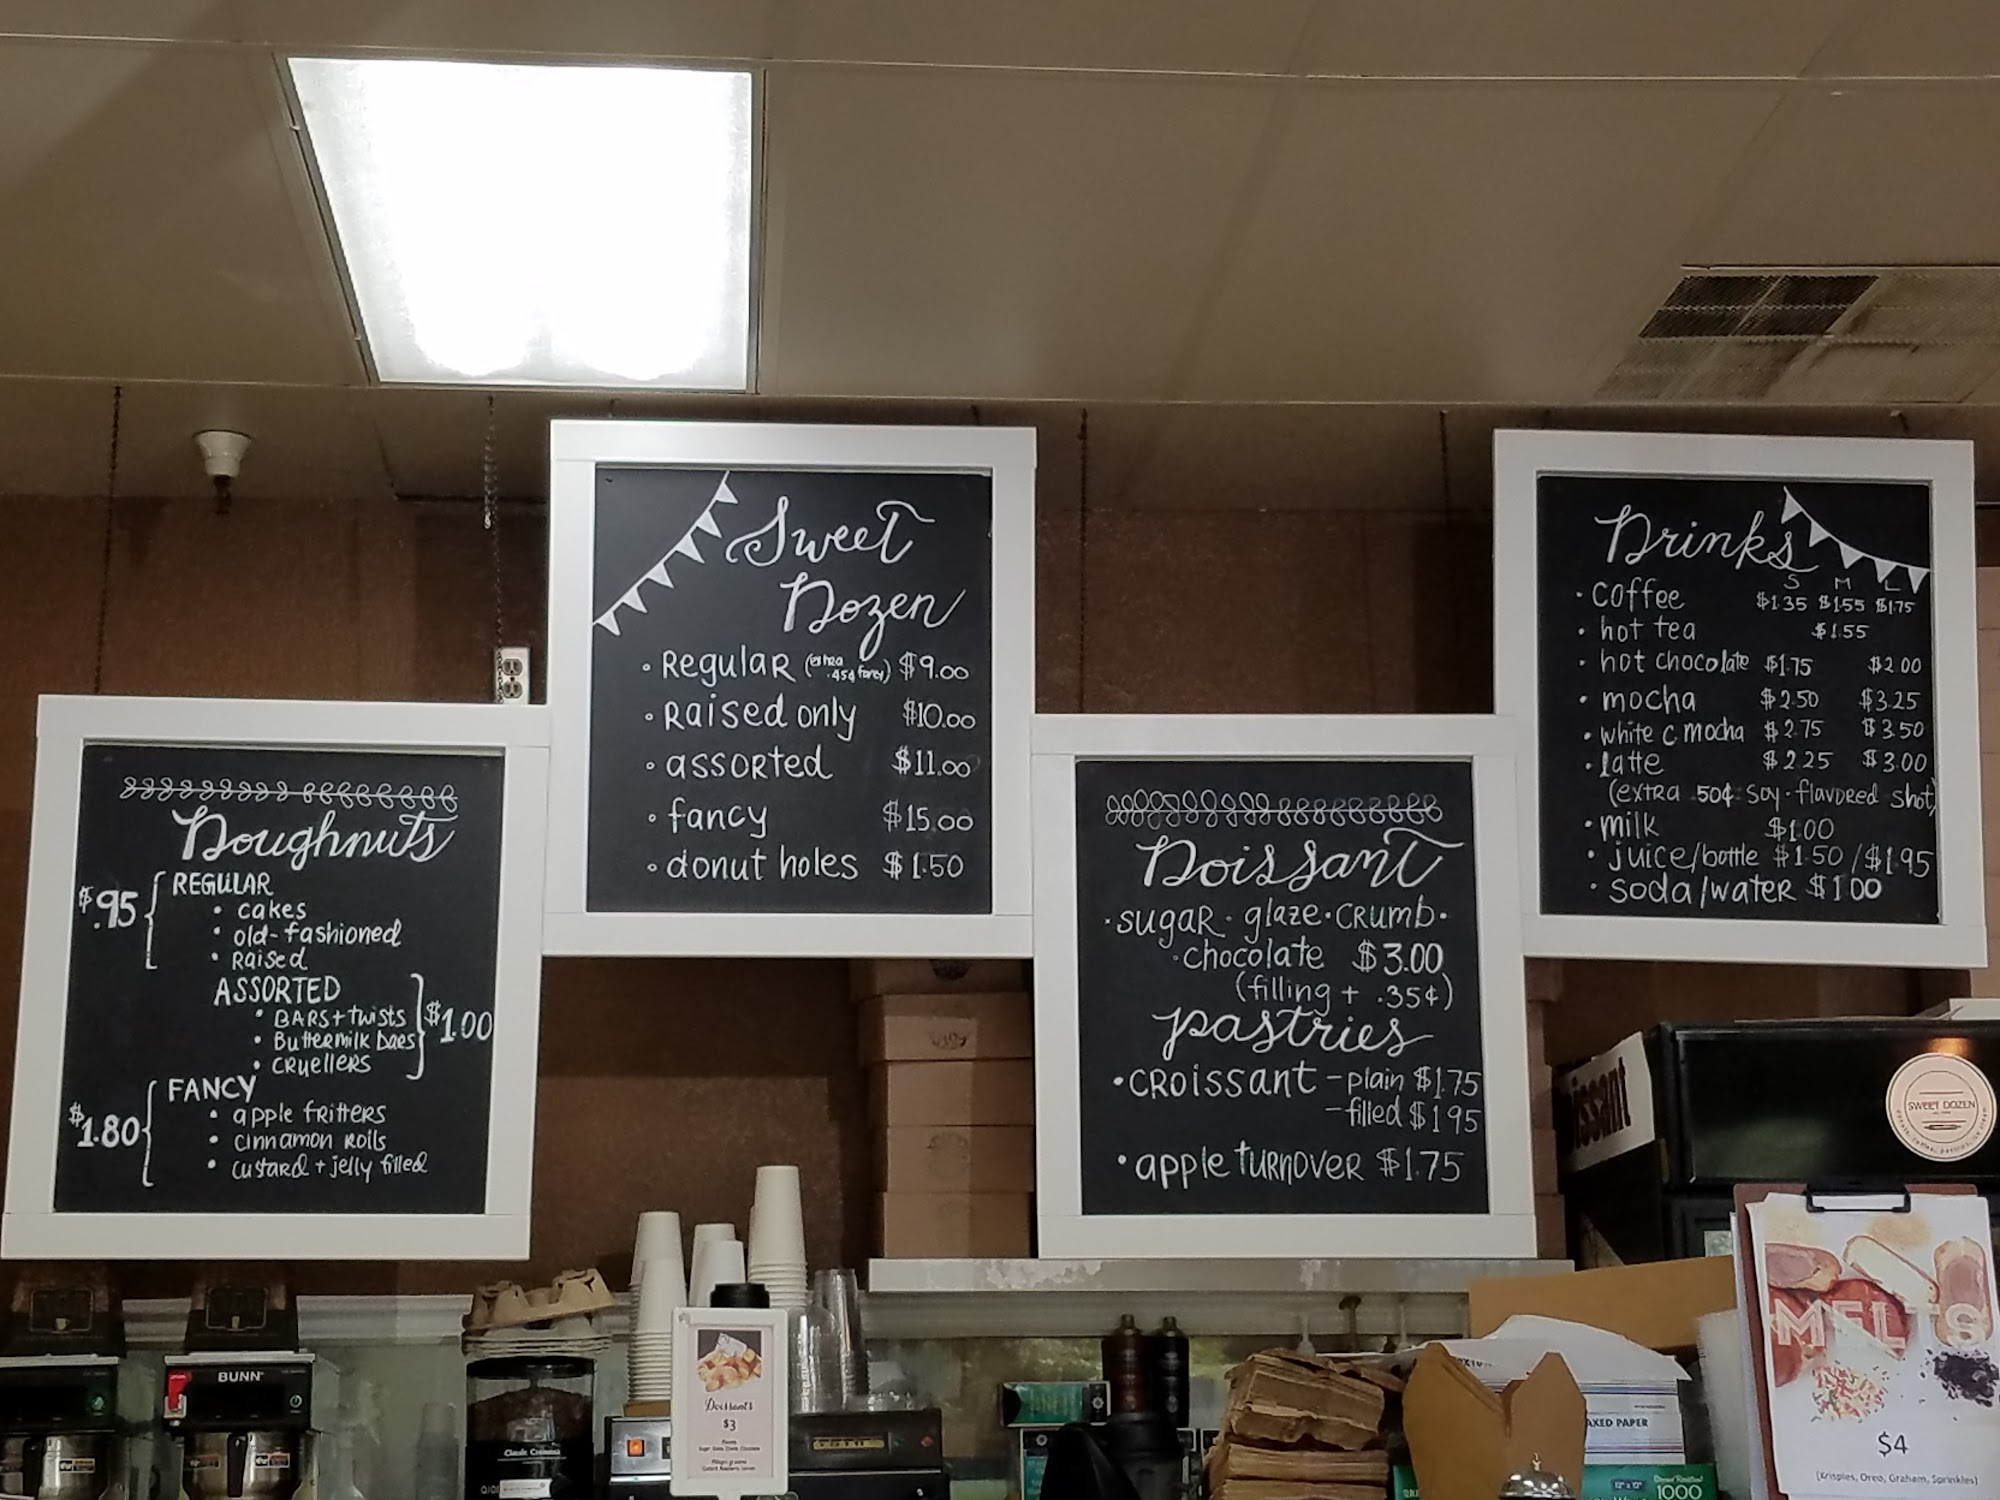 Doughnuts
$.95 REGULAR
• cakes
• old-fashioned
• Raised
ASSORTED $1.00
• BARS + twists
• Buttermilk bars
• CRuelleRS
$1.80 FANCY
• apple fritters
• cinnamon rolls
• custard + jelly filled
Sweet
Dozen
• Regular (extra .45¢ fancy) $9.00
• Raised only $10.00
• assorted $11.00
• fancy $15.00
• donut holes $1.50
Doissant
• sugar • glaze • CRUMB •
• chocolate $3.00
(filling + .35¢)
pastries
• CROISSANT - plain $1.75
- filled $1.95
• apple turnover $1.75
Drinks
S M L
• coffee $1.35 $1.55 $1.75
• hot tea $1.55
• hot chocolate $1.75 $2.00
• mocha $2.50 $3.25
• white c mocha $2.75 $3.50
• latte $2.25 $3.00
(extra .50¢ soy • flavored shot)
• milk $1.00
• juice/bottle $1.50 / $1.95
• soda/water $1.00
SWEET DOZEN
BUNN
Classic Cremma
Doissants
$3
AXED PAPER
12" x 12"
1000
MELTS
$4
(Krispies, Oreo, Graham, Sprinkles)